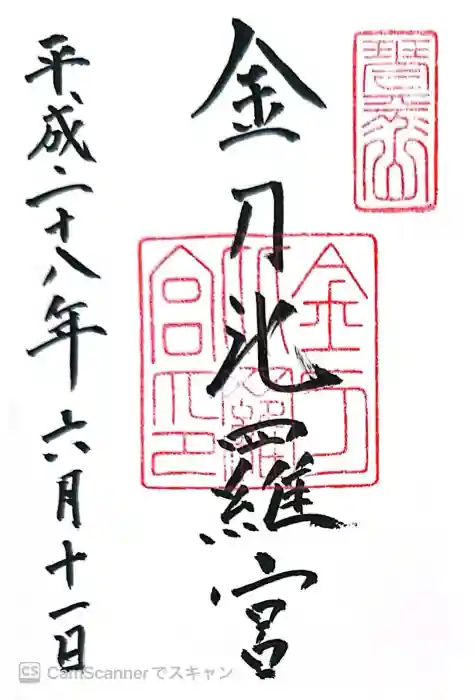 琴平山
金刀比羅宮
金刀比羅宮印
平成二十八年六月十一日
CS CamScannerでスキャン